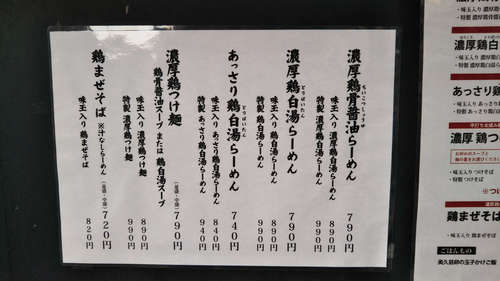 濃厚鶏骨醤油らーめん 790円
味玉入り 濃厚鶏骨醤油らーめん 890円
特製 濃厚鶏骨醤油らーめん 990円
濃厚鶏白湯らーめん 790円
とりぱいたん
味玉入り 濃厚鶏白湯らーめん 890円
特製 濃厚鶏白湯らーめん 990円
あっさり鶏白湯らーめん 740円
とりぱいたん
味玉入り あっさり鶏白湯らーめん 840円
特製 あっさり鶏白湯らーめん 940円
濃厚鶏つけ麺
鶏骨醤油スープ または 鶏白湯スープ
(並盛・中盛) 790円
味玉入り 濃厚鶏つけ麺 890円
特製 濃厚鶏つけ麺 990円
鶏まぜそば ※汁なしらーめん (並盛・中盛) 720円
味玉入り 鶏まぜそば 820円
・味玉入り 濃厚鶏
・特製 濃厚鶏骨醤
濃厚鶏白
・味玉入り 濃厚鶏白
・特製 濃厚鶏白湯ら
あっさり鶏
・味玉入り あっさり
・特製 あっさり鶏白
濃厚鶏つ
・味玉入り つけそば
・特製 つけそば
※つ
鶏まぜそ
・味玉入り まぜそば
ごはんもの
奥久慈卵の玉子かけご飯